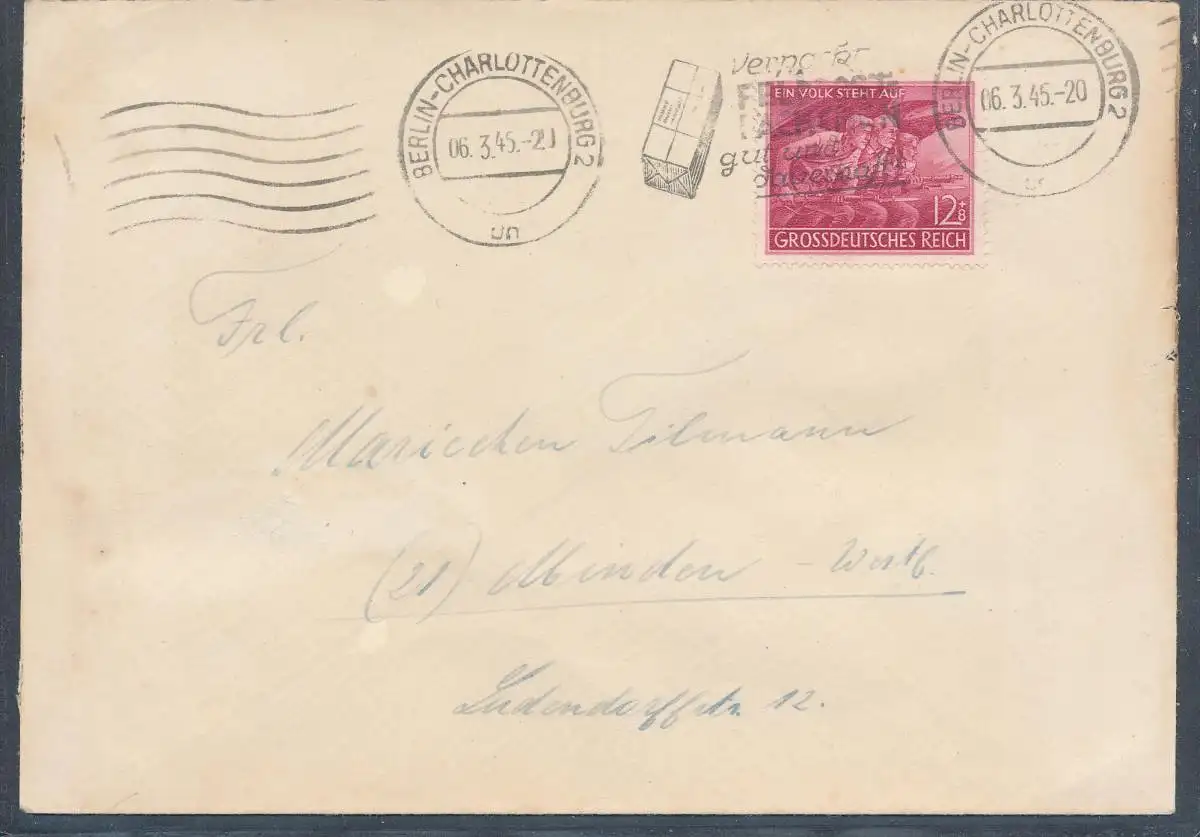 BERLIN-CHARLOTTENBURG 2
06.3.45.-20
un
verpackt
FELDPOST
gut und
dauerhaft!
BERLIN-CHARLOTTENBURG 2
06.3.45.-20
EIN VOLK STEHT AUF
12+8
GROSSDEUTSCHES REICH
Frl.
Mariechen Tilmann
(21) Minden - Westf.
Ludendorffstr. 12.